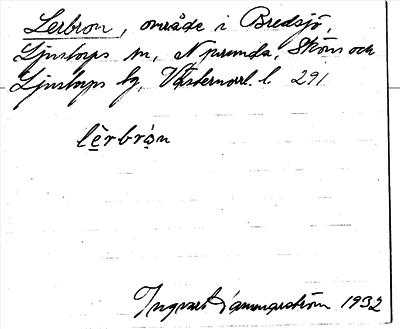 Lerbron, område i Bredsjö,
Ljustorps sn, N purunda, Sköns och
Ljustorps tg, Västernorrl. l. 291
lèrbrón
Ingvar Hammarström 1932